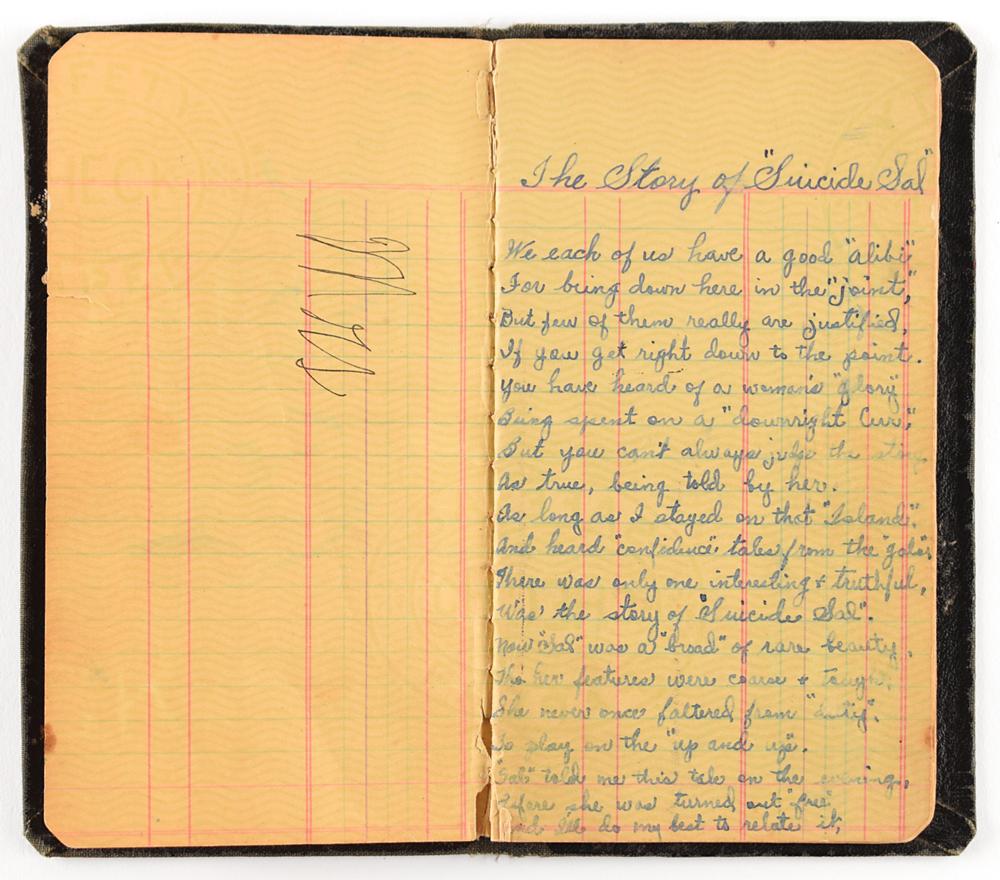 The Story of "Suicide Sal"
We each of us have a good "alibi"
For being down here in the "joint,"
But few of them really are justified,
If you get right down to the point.
You have heard of a woman's "glory"
Being spent on a "downright Cur",
But you can't always judge the story
As true, being told by her.
As long as I stayed on that "Island".
And heard "confidence" tales from the "gals"
There was only one interesting & truthful,
Was the story of "Suicide Sal".
Now "Sal" was a "broad" of rare beauty,
Tho' her features were coarse & tough;
She never once faltered from "duty".
To play on the "up and up".
"Sal" told me this tale on the evening,
Before she was turned out "free"
And I'll do my best to relate it,